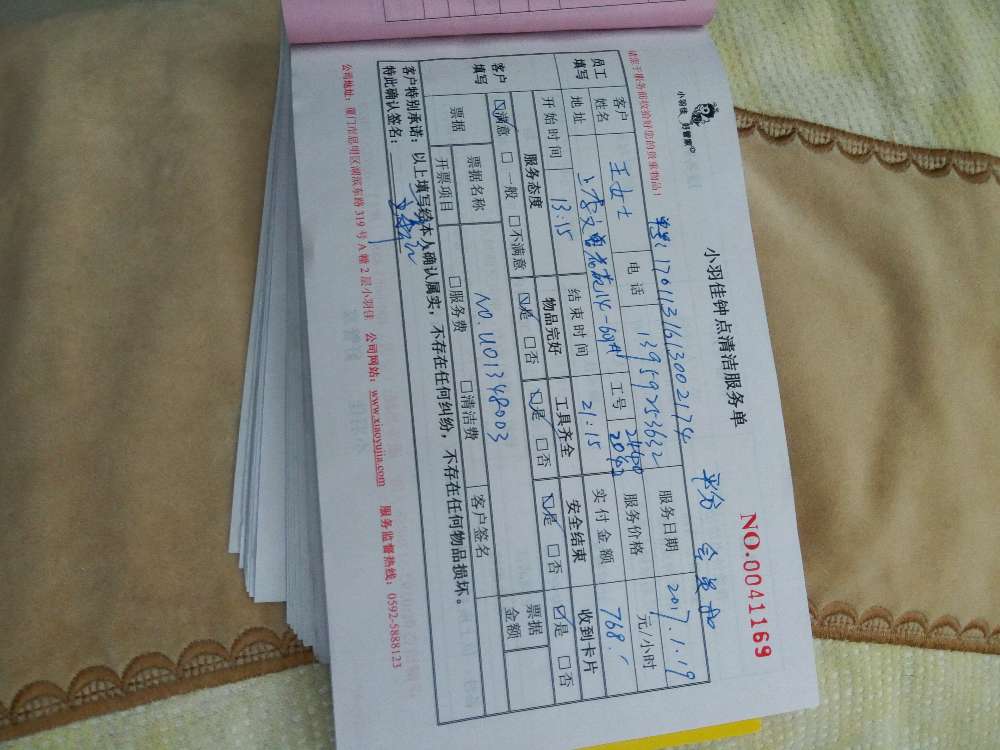 小羽佳 好管家
小羽佳钟点清洁服务单
NO.0041169
平分 会员
请服于服务前收验好您的贵重物品!
单号: 1701131613002174
服务日期 2017.1.19
员工填写
客户姓名 王女士 电话 13959253632 服务价格 元/小时
地址 工号 2040 实付金额 768.
开始时间 13:15 结束时间 21:15
客户填写
服务态度 物品完好 工具齐全 安全结束 收到卡片
☑满意 □一般 □不满意 ☑是 □否 ☑是 □否 ☑是 □否 ☑是 □否
票据 票据名称 NO.U01348003 客户签名 票据金额
开票项目 □服务费 □清洁费
客户特别承诺:以上填写经本人确认属实,不存在任何纠纷,不存在任何物品损坏。
特此确认签名:
公司地址:厦门市思明区湖滨东路319号A幢2层小羽佳 公司网站:www.xiaoyujia.com 服务监督热线:0592-5888123